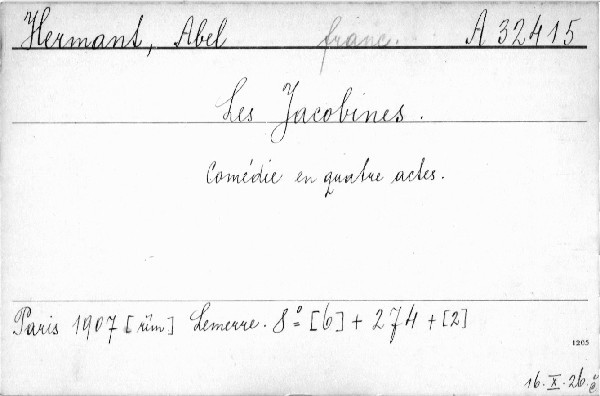 Hermant, Abel franc. A 32415
Les Jacobines.
Comédie en quatre actes.
Paris 1907 [rüm] Lemerre. 8° [6] + 274 + [2]
1205
16. X. 26.